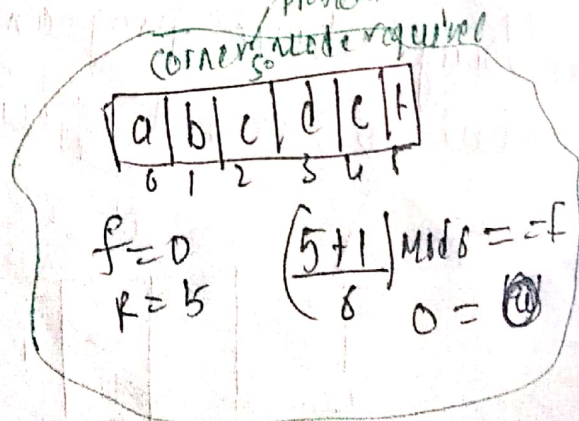 corner, so mode required
a b c d e f
0 1 2 3 4 5
f=0
(5+1)/6 Mod6 = =f
R=5
0 =